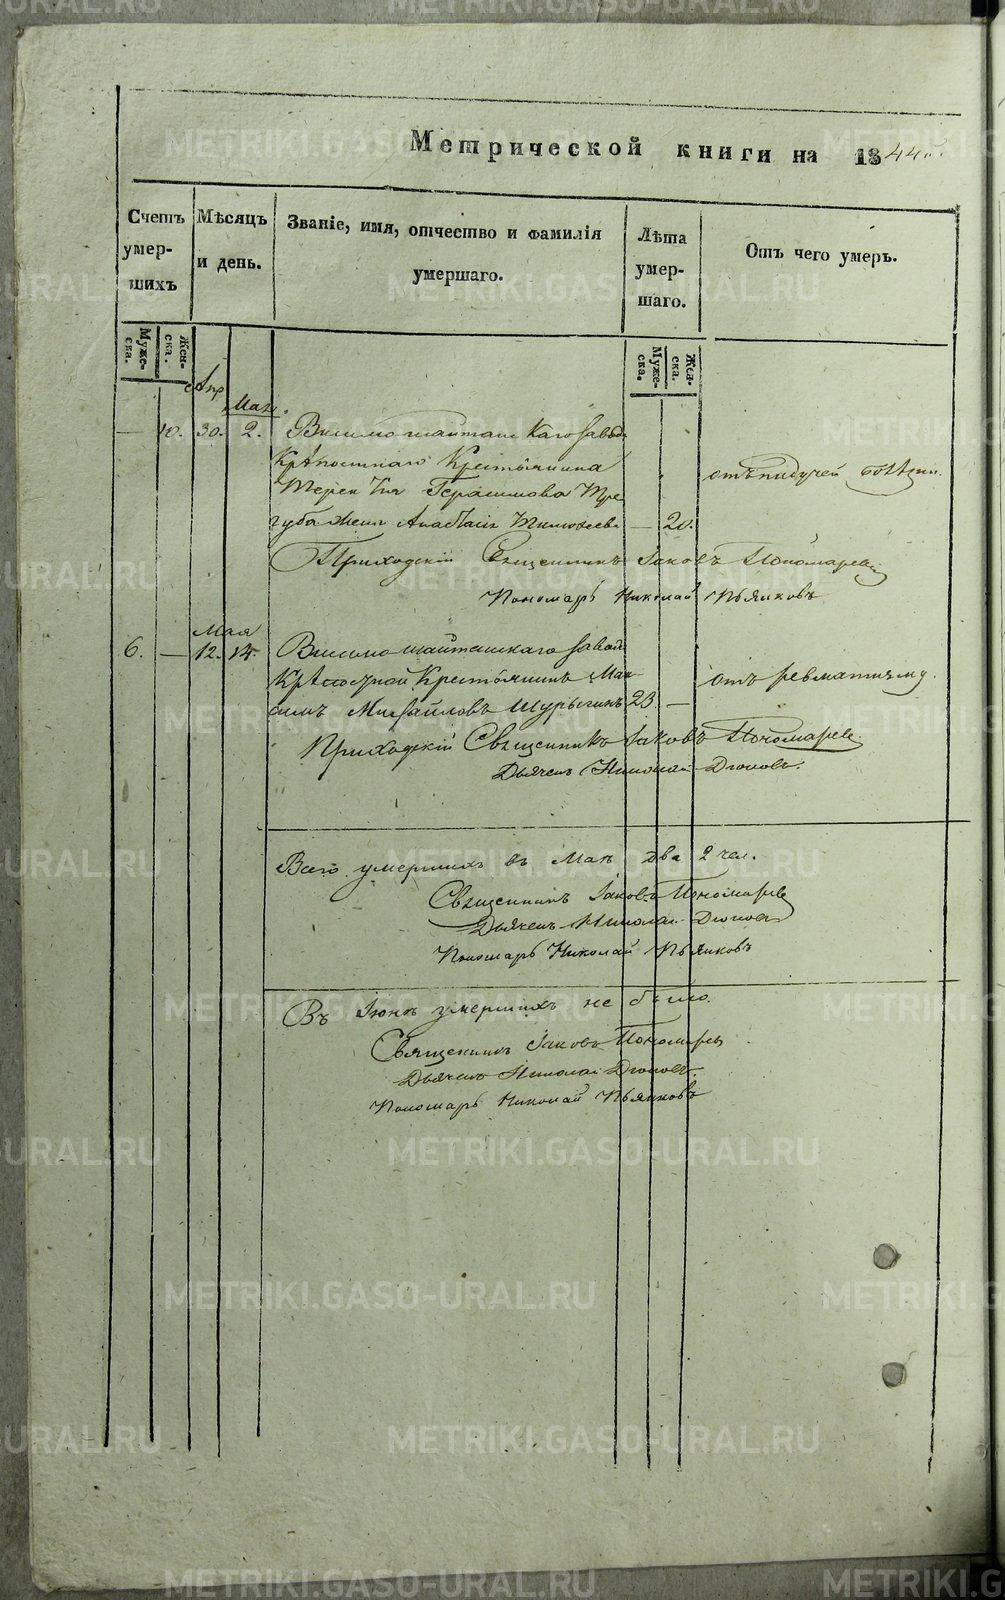 Метрической книги на 1844 г.
Счетъ умер-шихъ
Мѣсяцъ и день.
Званіе, имя, отчество и фамилія умершаго.
Лѣта умер-шаго.
Отъ чего умеръ.
Муже-ска.
Жен-ска.
Муже-ска.
Жен-ска.
Апр
Мая.
— 10. 30. 2. Висимошайтанскаго завода
Крѣпостнаго Крестьянина
отъ падучей болѣзни.
Терентія Герасимова Тре
губа жена Анастасія Тимоѳеева — 20.
Приходскій Священникъ Іаковъ Пономаревъ
Пономарь Николай Пьянковъ
Мая
6. — 12. 14. Висимошайтанскаго завода
Крѣпостной Крестьянинъ Мак-
отъ ревматизму.
симъ Михайловъ Шурыгинъ 23. —
Приходскій Священникъ Іаковъ Пономаревъ
Дьячекъ Николай
Всего умершихъ въ Маѣ два 2 чел.
Священникъ Іаковъ Пономаревъ
Дьячекъ Николай
Пономарь Николай Пьянковъ
Въ Іюнѣ умершихъ не было.
Священникъ Іаковъ Пономаревъ
Дьячекъ Николай
Пономарь Николай Пьянковъ
METRIKI.GASO-URAL.RU